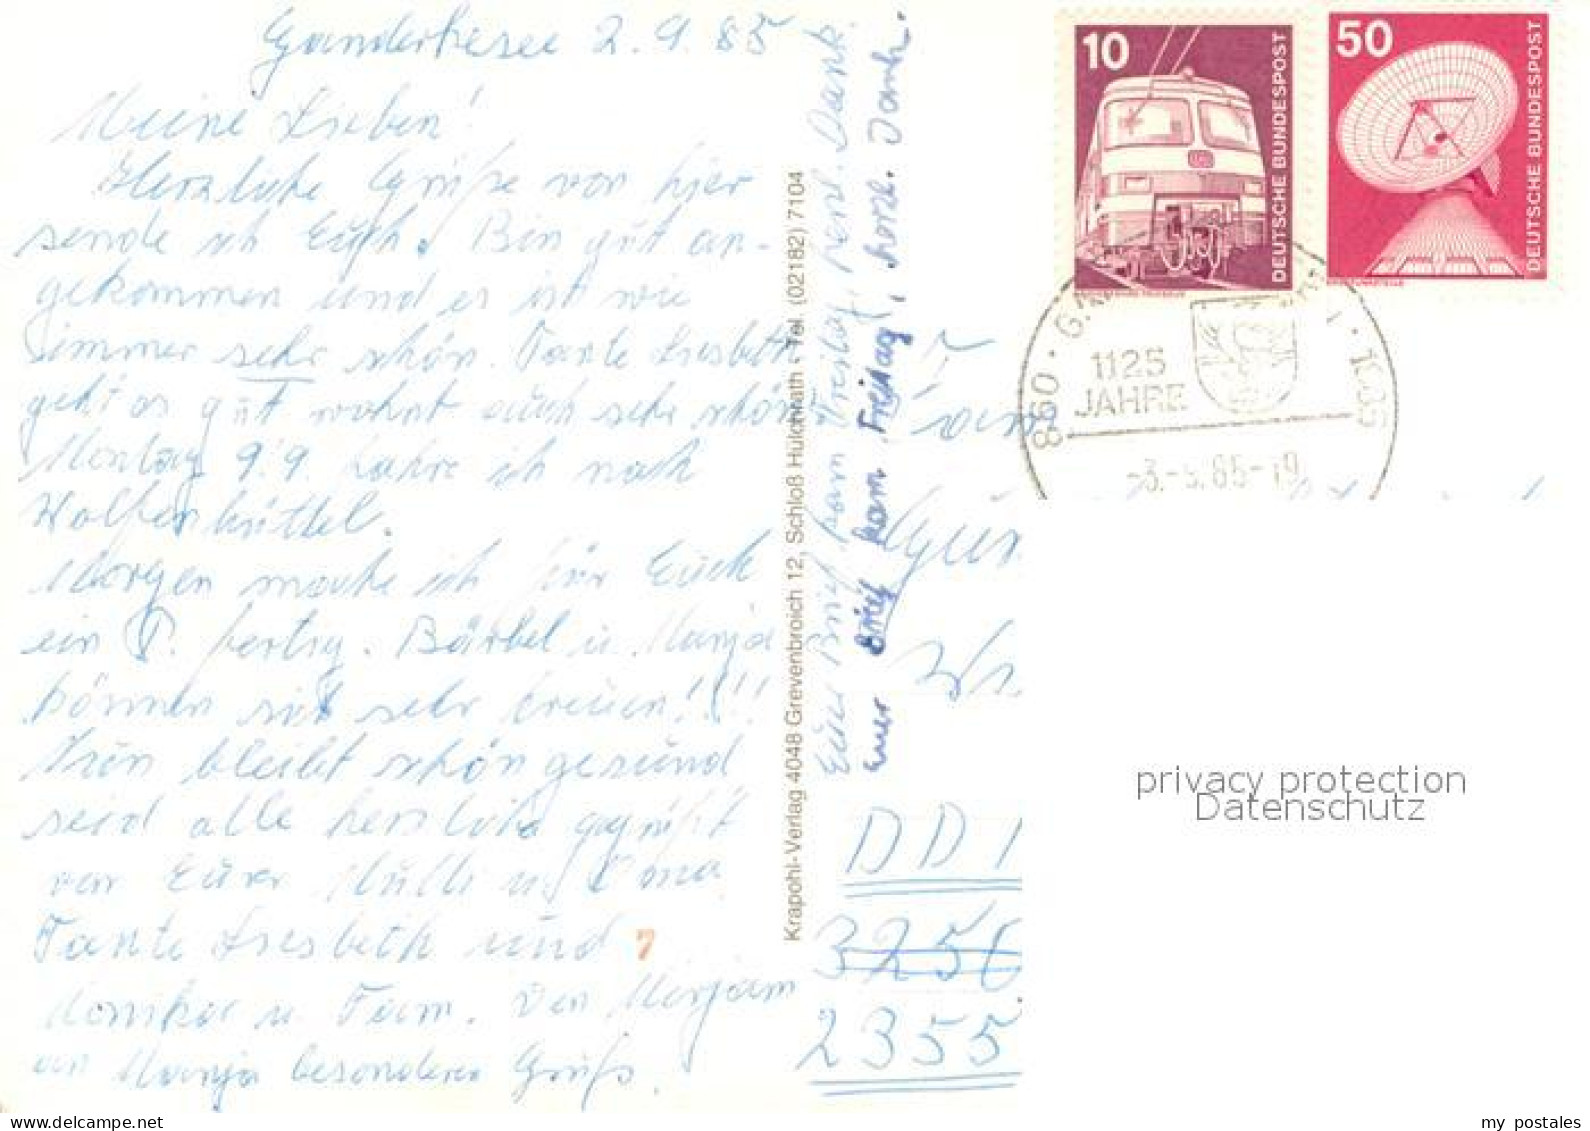 Ganderkesee 2.9.85
Meine Lieben!
Herzliche Grüße von hier
sende ich Euch. Bin gut an-
gekommen und es ist wie
immer sehr schön. Tante Liesbeth
geht es gut wohnt auch sehr schön.
Montag 9.9. fahre ich nach
Wolfenbüttel.
Morgen mache ich für Euch
ein P. fertig. Bärbel u. Manja
können sich sehr freuen!!!!
Nun bleibt schön gesund
seid alle herzlich gegrüßt
von Eurer Mutti u. Oma
Tante Liesbeth und
Monika u. Fam. Von Mirjam
an Manja besonderen Gruß.
7
Krapohl-Verlag 4048 Grevenbroich 12, Schloß Hülchrath - Tel. (02182) 7104
Euer Brief kam Freitag, herzl. Dank.
Euer Brief kam Freitag, herzl. Dank.
10
DEUTSCHE BUNDESPOST
50
DEUTSCHE BUNDESPOST
1125
JAHRE
1985
DD
325
2355
privacy protection
Datenschutz
my postales